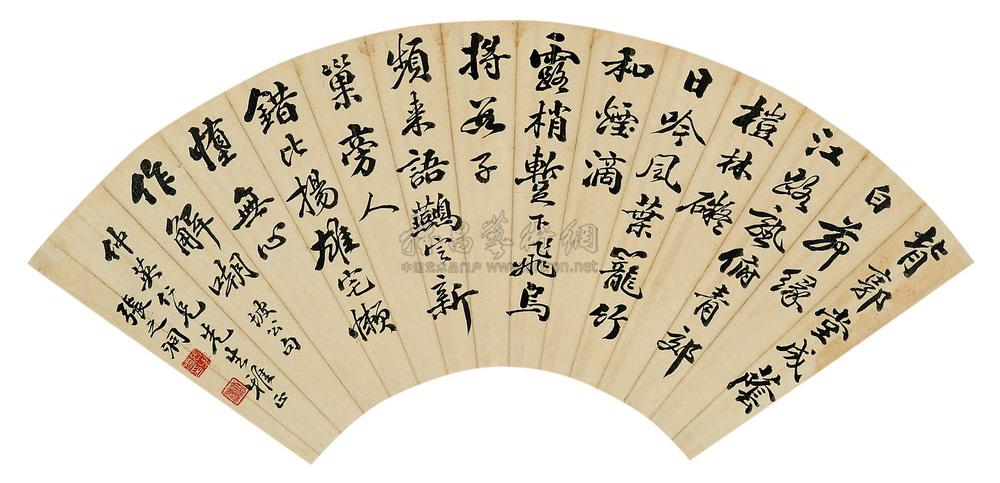 背郭堂成蔭
白茆緣
江路熟俯青郊
榿林礙
日吟風葉籠竹
和煙滴
露梢暫下飛烏
將數子
頻來語鷰定新
巢旁人
錯比揚雄宅懶
惰無心
作解嘲 坡公句
仲英仁兄先生雅正
張之洞
雅昌藝術網
中国艺术品门户